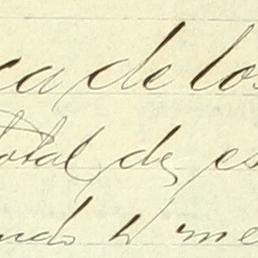 ca de los
total de es
ando